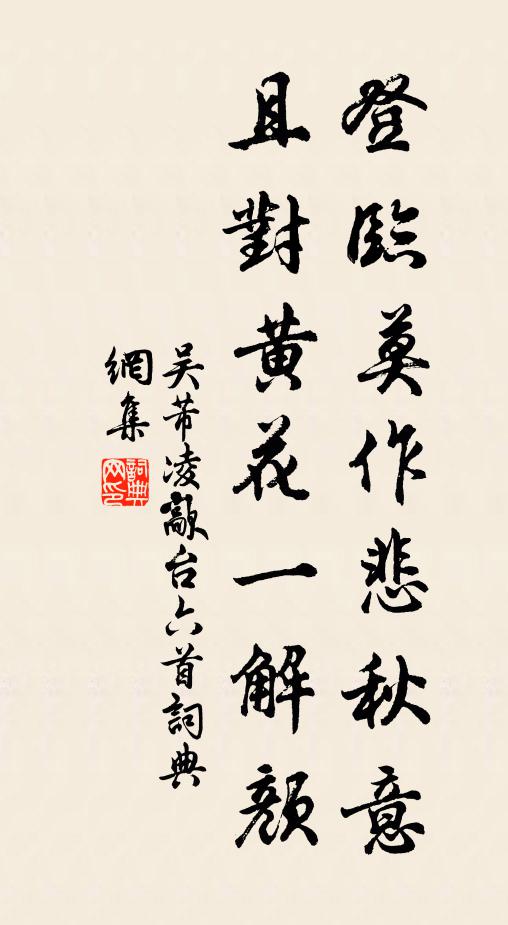 登臨莫作悲秋意
且對黃花一解顏
吴芾凌歊台六首詞典
網集
詞典
网印